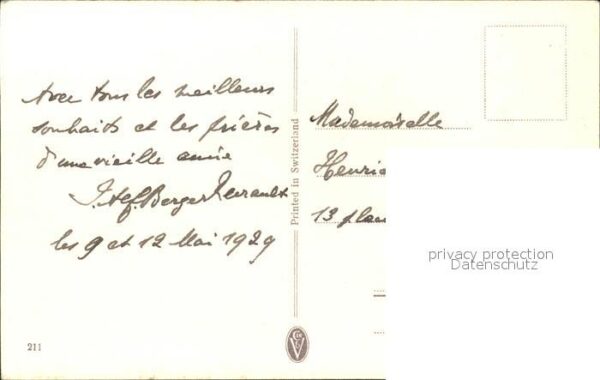 Avec tous les meilleurs
souhaits et les prières
d'une vieille amie
Berger
les 9 et 12 Mai 1929
211
Printed in Switzerland
Mademoiselle
13
privacy protection
Datenschutz